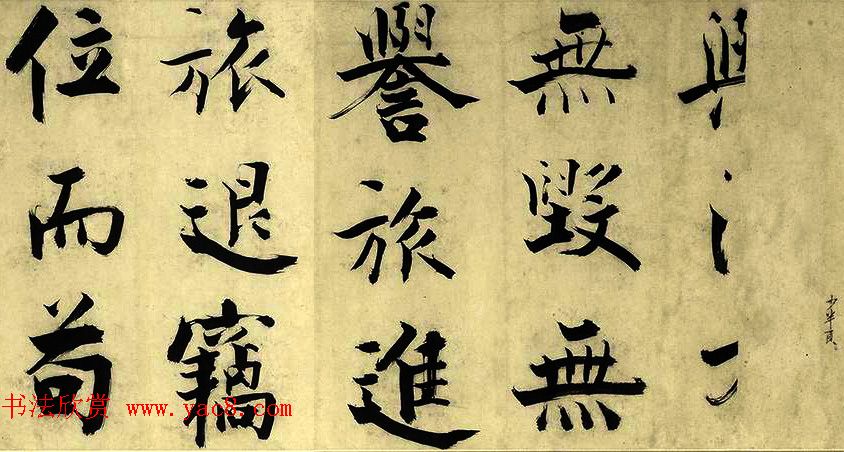 無毀無
譽旅進
旅退竊
位而苟
少半頁
书法欣赏 www.yac8.com